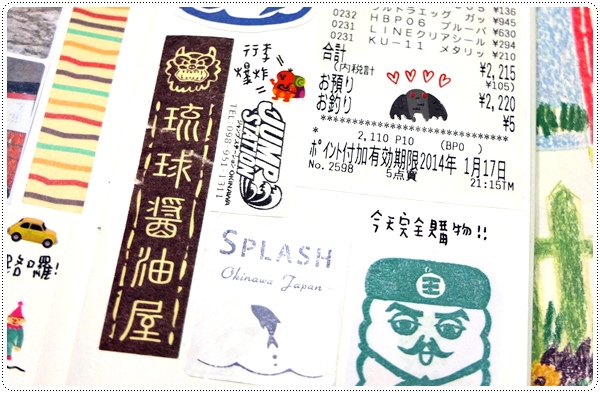 行李
爆炸
琉球醬油屋
JUMP
STATION
ジャンプステーション OKINAWA
TEL 098-951-1311
¥136
0232 ウルトラエッグ ガッ ¥945
0231 HBP06 ブルーバ ¥630
0231 LINEクリアシール ¥294
KU-11 メタリッ ¥210
合計 ¥2,215
(内税計 ¥105)
お預り ¥2,220
お釣り ¥5
2,110 P10 (BP0 )
ポイント付加有効期限2014年 1月17日
No.2598 5点買 21:15TM
SPLASH
Okinawa Japan
今天完全購物!!
王
路囉!